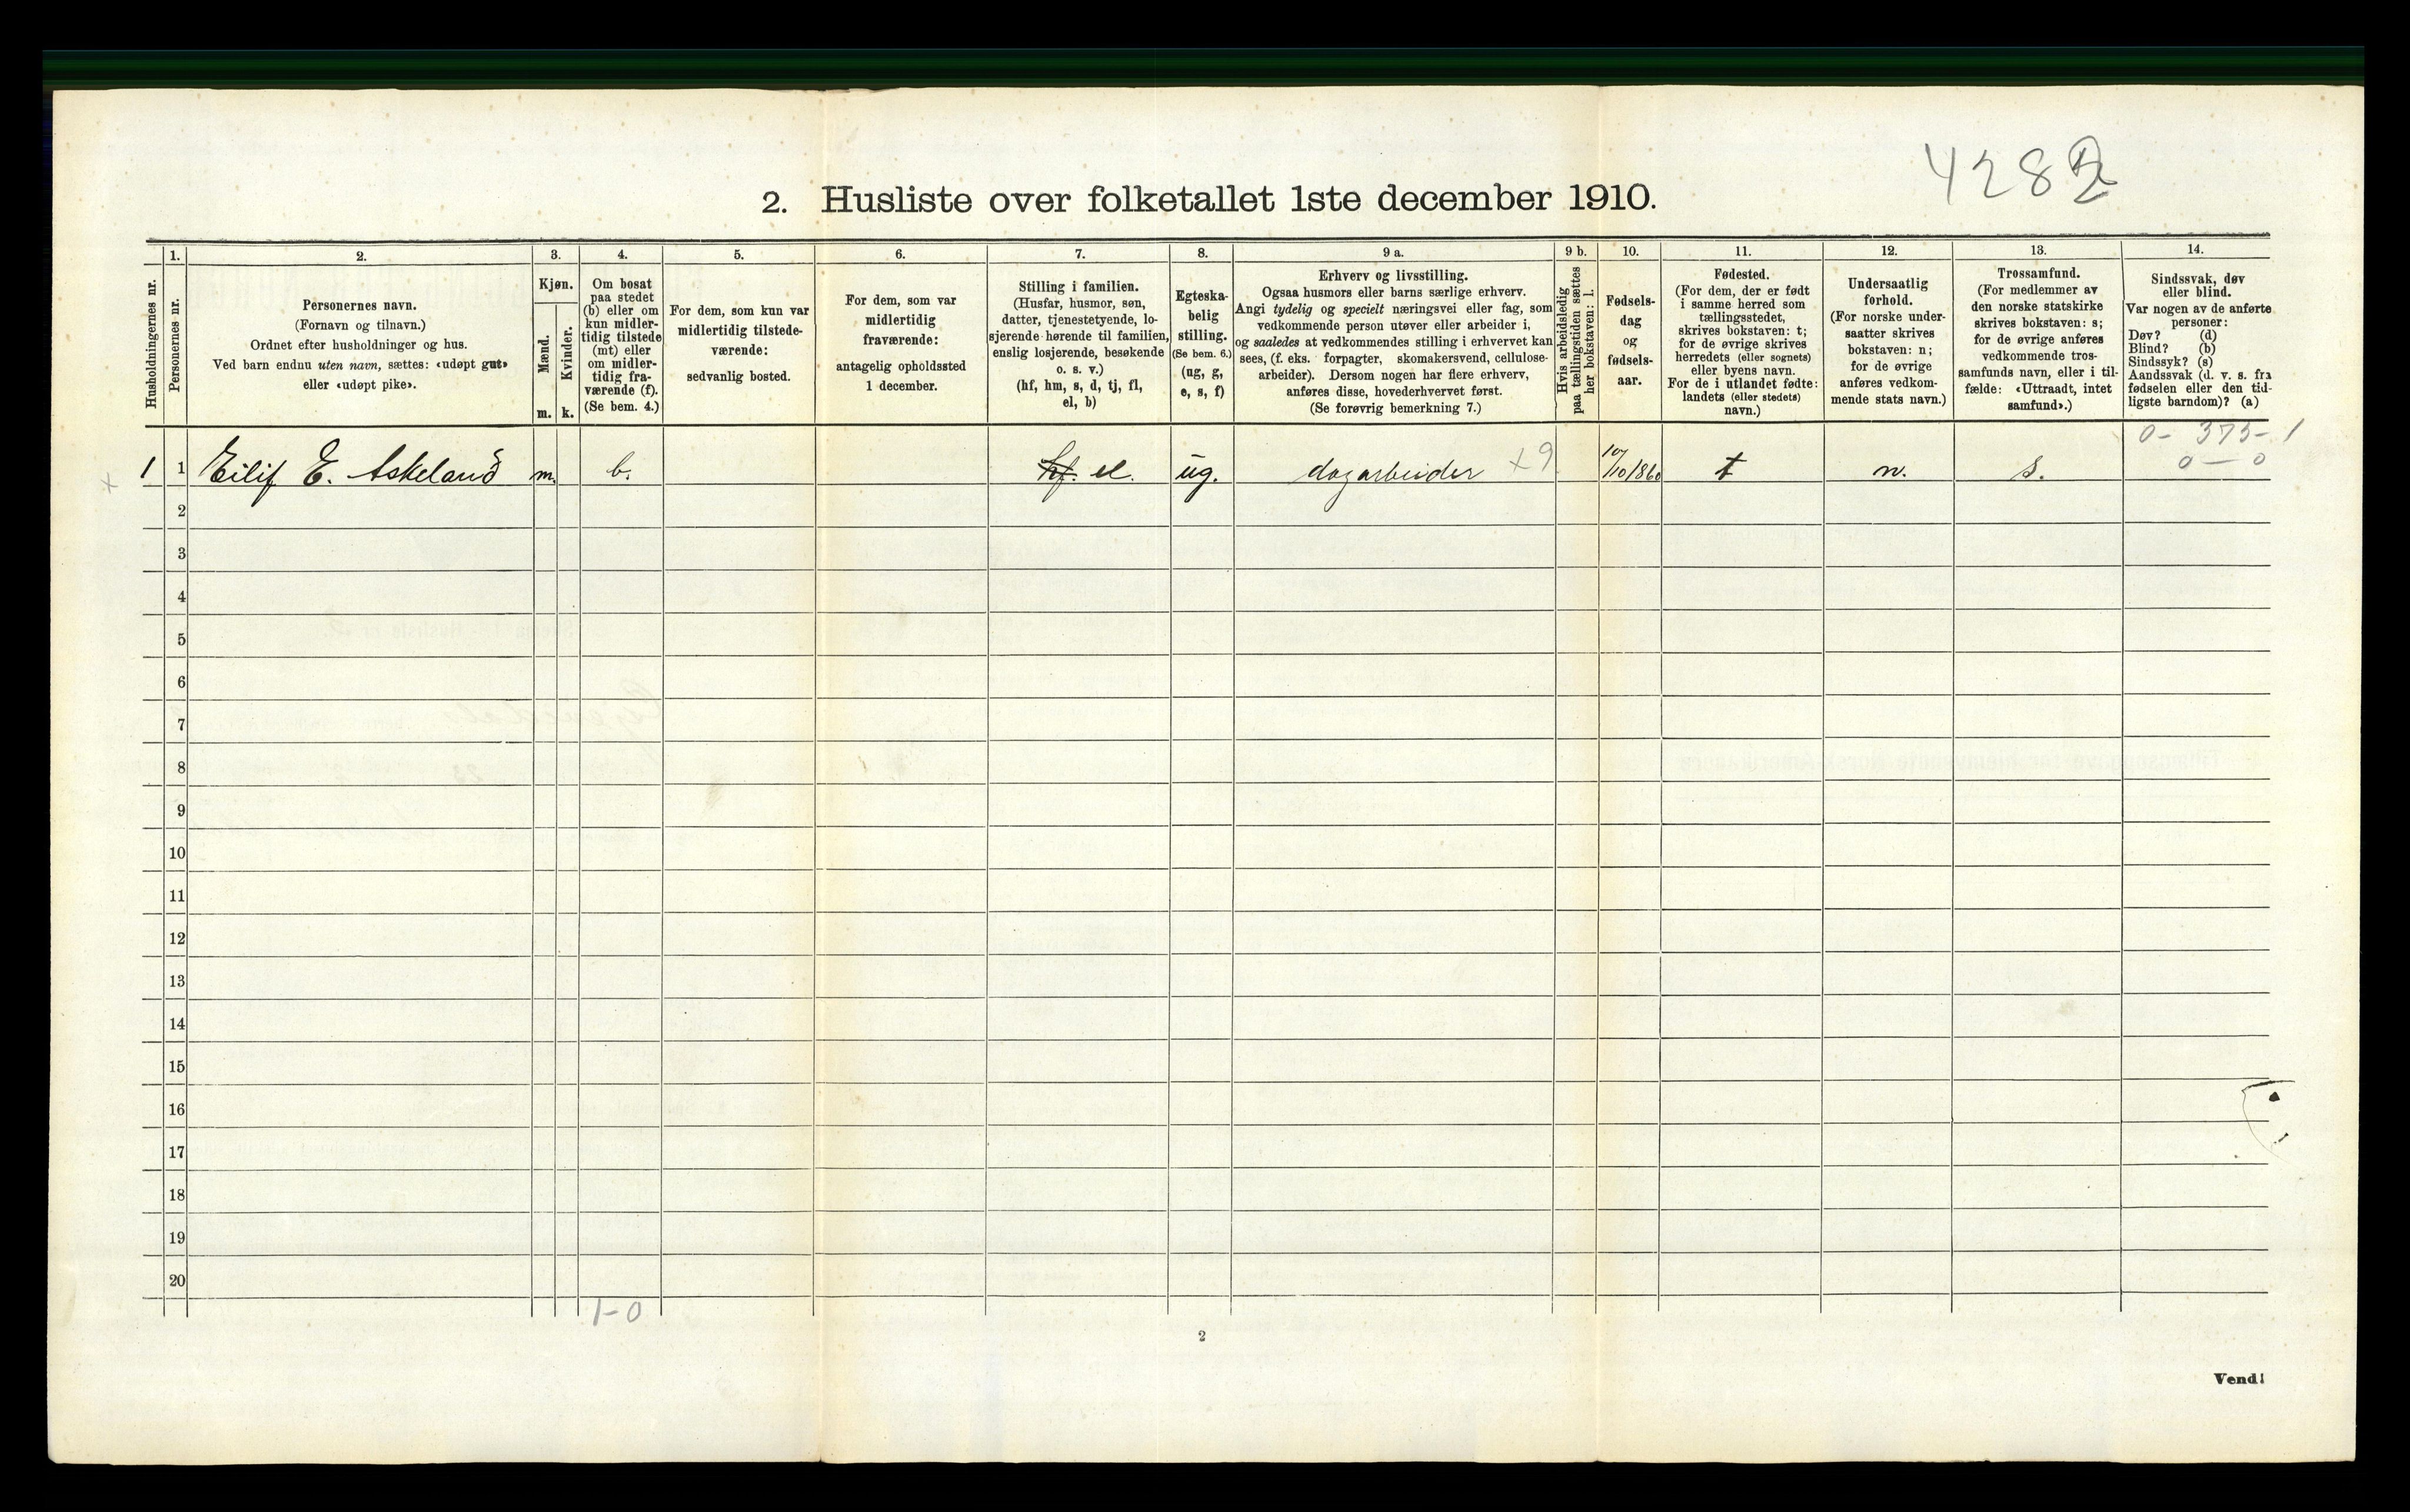 4282
2. Husliste over folketallet 1ste december 1910.
Husholdningernes nr.
1.
Personernes nr.
2.
Personernes navn.
(Fornavn og tilnavn.)
Ordnet efter husholdninger og hus.
Ved barn endnu uten navn, sættes: «udøpt gut»
eller «udøpt pike».
3.
Kjøn.
Mænd.
m.
Kvinder.
k.
4.
Om bosat
paa stedet
(b) eller om
kun midler-
tidig tilstede
(mt) eller
om midler-
tidig fra-
værende (f).
(Se bem. 4.)
5.
For dem, som kun var
midlertidig tilstede-
værende:
sedvanlig bosted.
6.
For dem, som var
midlertidig
fraværende:
antagelig opholdssted
1 december.
7.
Stilling i familien.
(Husfar, husmor, søn,
datter, tjenestetyende, lo-
sjerende hørende til familien,
enslig losjerende, besøkende
o. s. v.)
(hf, hm, s, d, tj, fl,
el, b)
8.
Egteska-
belig
stilling.
(Se bem. 6.)
(ug, g,
e, s, f)
9 a.
Erhverv og livsstilling.
Ogsaa husmors eller barns særlige erhverv.
Angi tydelig og specielt næringsvei eller fag, som
vedkommende person utøver eller arbeider i,
og saaledes at vedkommendes stilling i erhvervet kan
sees, (f. eks. forpagter, skomakersvend, cellulose-
arbeider). Dersom nogen har flere erhverv,
anføres disse, hovederhvervet først.
(Se forøvrig bemerkning 7.)
9 b.
Hvis arbeidsledig
paa tællingstiden sættes
her bokstaven: l.
10.
Fødsels-
dag
og
fødsels-
aar.
11.
Fødested.
(For dem, der er født
i samme herred som
tællingsstedet,
skrives bokstaven: t;
for de øvrige skrives
herredets (eller sognets)
eller byens navn.
For de i utlandet fødte:
landets (eller stedets)
navn.)
12.
Undersaatlig
forhold.
(For norske under-
saatter skrives
bokstaven: n;
for de øvrige
anføres vedkom-
mende stats navn.)
13.
Trossamfund.
(For medlemmer av
den norske statskirke
skrives bokstaven: s;
for de øvrige anføres
vedkommende tros-
samfunds navn, eller i til-
fælde: «Uttraadt, intet
samfund».)
14.
Sindssvak, døv
eller blind.
Var nogen av de anførte
personer:
Døv? (d)
Blind? (b)
Sindssyk? (s)
Aandssvak (d. v. s. fra
fødselen eller den tid-
ligste barndom)? (a)
0- 375-1
0 — 0
x 1 1 Eilif E. Askeland m. b. hf. el. ug. dagarbeider x9 10/10 1860 t n. s.
2
3
4
5
6
7
8
9
10
11
12
13
14
15
16
17
18
19
20
1-0
2
Vend!